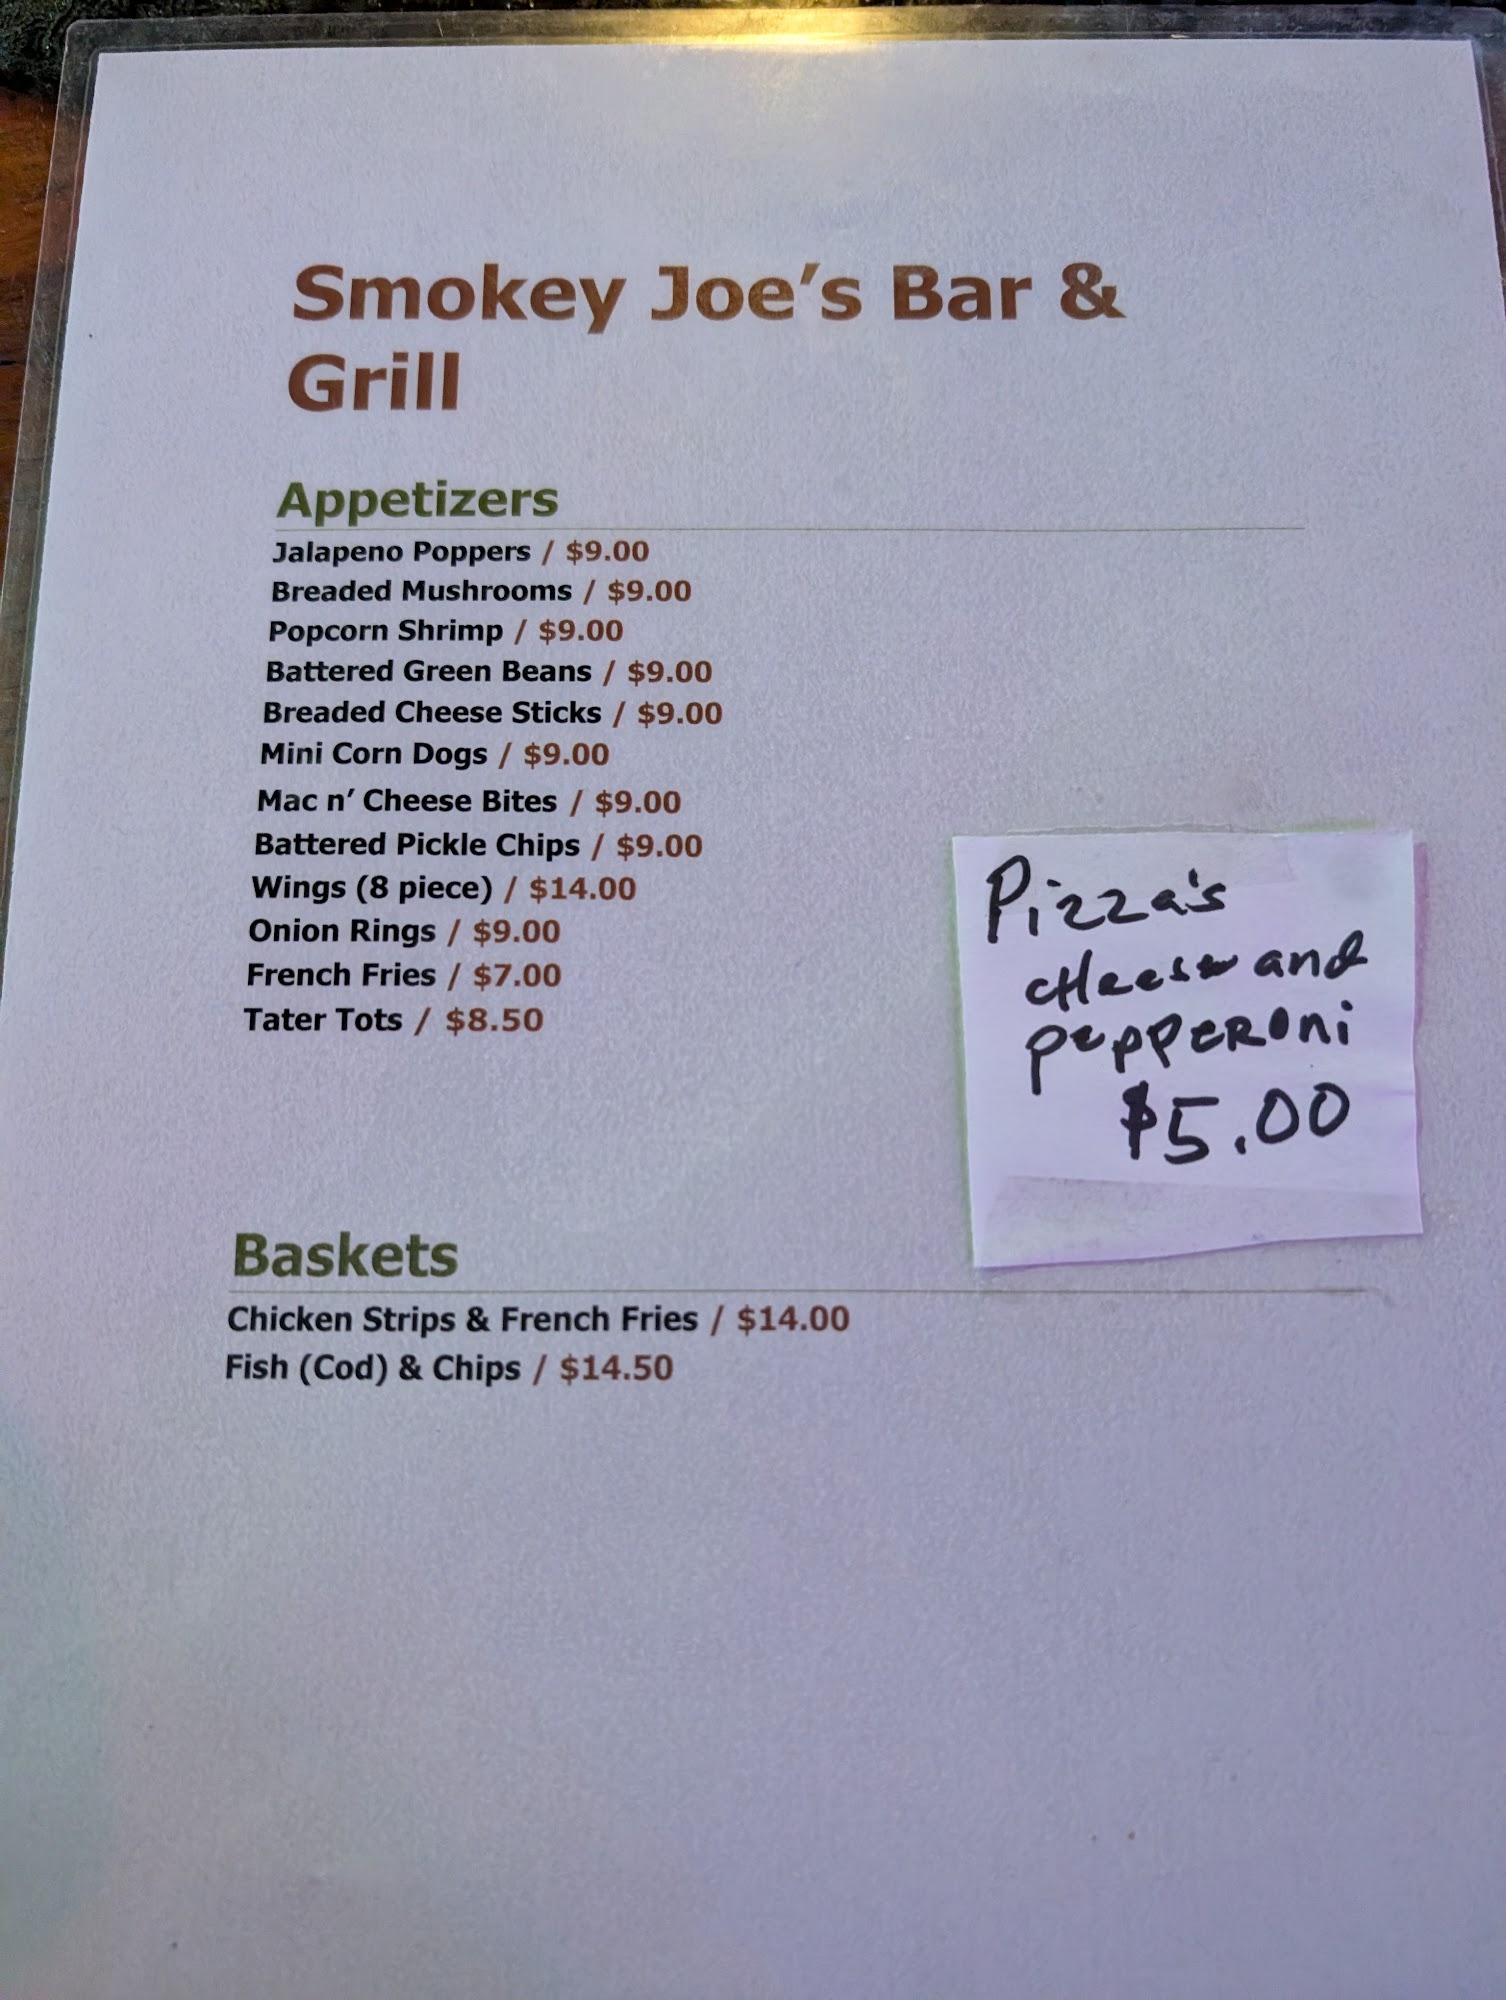 Smokey Joe’s Bar &
Grill
Appetizers
Jalapeno Poppers / $9.00
Breaded Mushrooms / $9.00
Popcorn Shrimp / $9.00
Battered Green Beans / $9.00
Breaded Cheese Sticks / $9.00
Mini Corn Dogs / $9.00
Mac n’ Cheese Bites / $9.00
Battered Pickle Chips / $9.00
Wings (8 piece) / $14.00
Onion Rings / $9.00
French Fries / $7.00
Tater Tots / $8.50
Pizza's
cHeese and
pepperoni
$5.00
Baskets
Chicken Strips & French Fries / $14.00
Fish (Cod) & Chips / $14.50